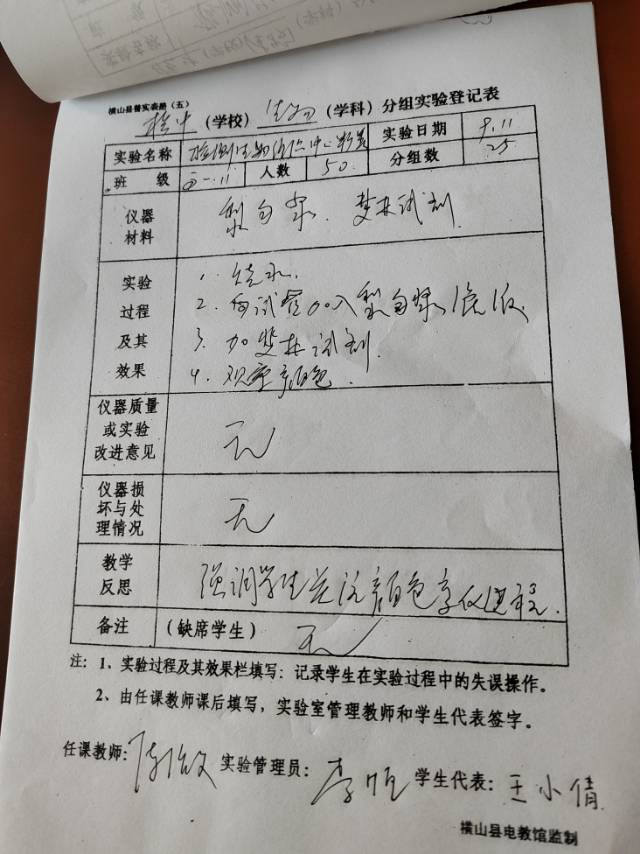 横山县普实表册（五）
（学校） 生物 （学科）分组实验登记表
实验名称 检测生物组织中 实验日期 9.11
班 级 人数 50 分组数 25
仪器材料 梨匀浆、斐林试剂
实验过程及其效果
1. 
2. 向试管加入梨匀浆液
3. 加斐林试剂
4. 观察颜色
仪器质量或实验改进意见 无
仪器损坏与处理情况 无
教学反思 强调学生关注颜色变化过程.
备注 （缺席学生） 无
注：1、实验过程及其效果栏填写：记录学生在实验过程中的失误操作。
2、由任课教师课后填写，实验室管理教师和学生代表签字。
任课教师： 实验管理员： 学生代表：王小倩
横山县电教馆监制